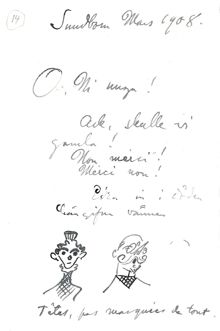 14
Sundborn Mars 1908.
O, Ni unga!
Ack, skulle vi
gamla!
Non merci!
Merci non!
Edra in i döden
vänner
Têtes, pas marquées du tout